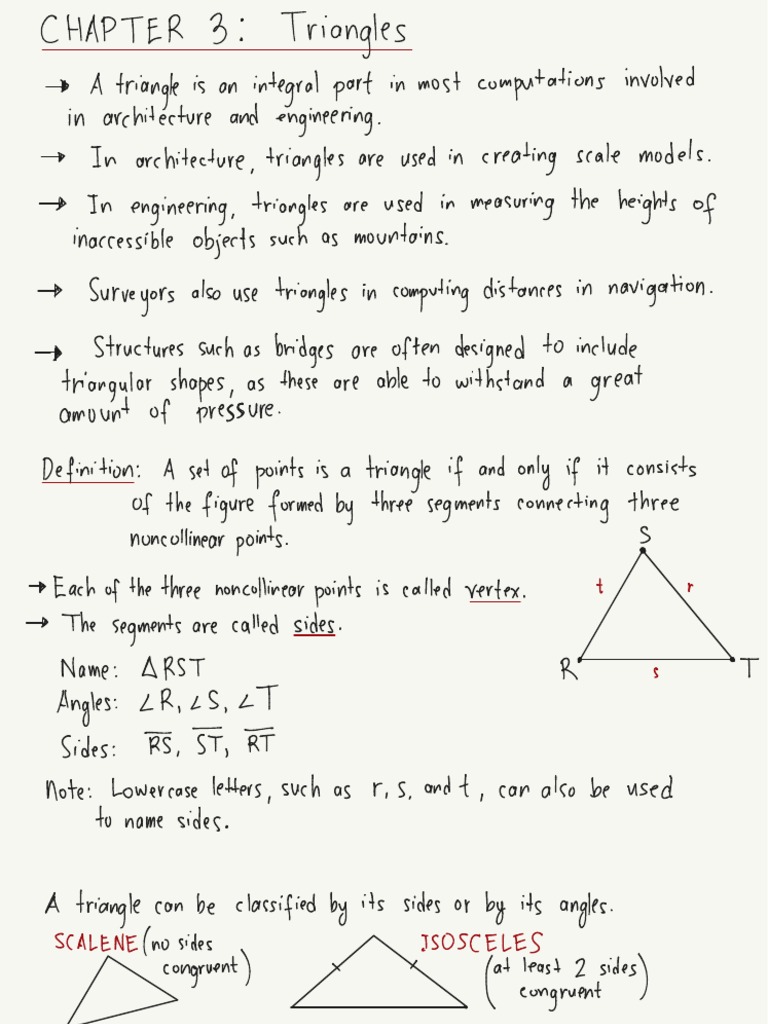 CHAPTER 3: Triangles
→ A triangle is an integral part in most computations involved
in architecture and engineering.
→ In architecture, triangles are used in creating scale models.
→ In engineering, triangles are used in measuring the heights of
inaccessible objects such as mountains.
→ Surveyors also use triangles in computing distances in navigation.
→ Structures such as bridges are often designed to include
triangular shapes, as these are able to withstand a great
amount of pressure.
Definition: A set of points is a triangle if and only if it consists
of the figure formed by three segments connecting three
noncollinear points.
S
→ Each of the three noncollinear points is called vertex.
t r
→ The segments are called sides.
Name: △RST
R s T
Angles: ∠R, ∠S, ∠T
Sides: R̅S̅, S̅T̅, R̅T̅
Note: Lowercase letters, such as r, s, and t, can also be used
to name sides.
A triangle can be classified by its sides or by its angles.
SCALENE (no sides
congruent)
ISOSCELES
(at least 2 sides
congruent)